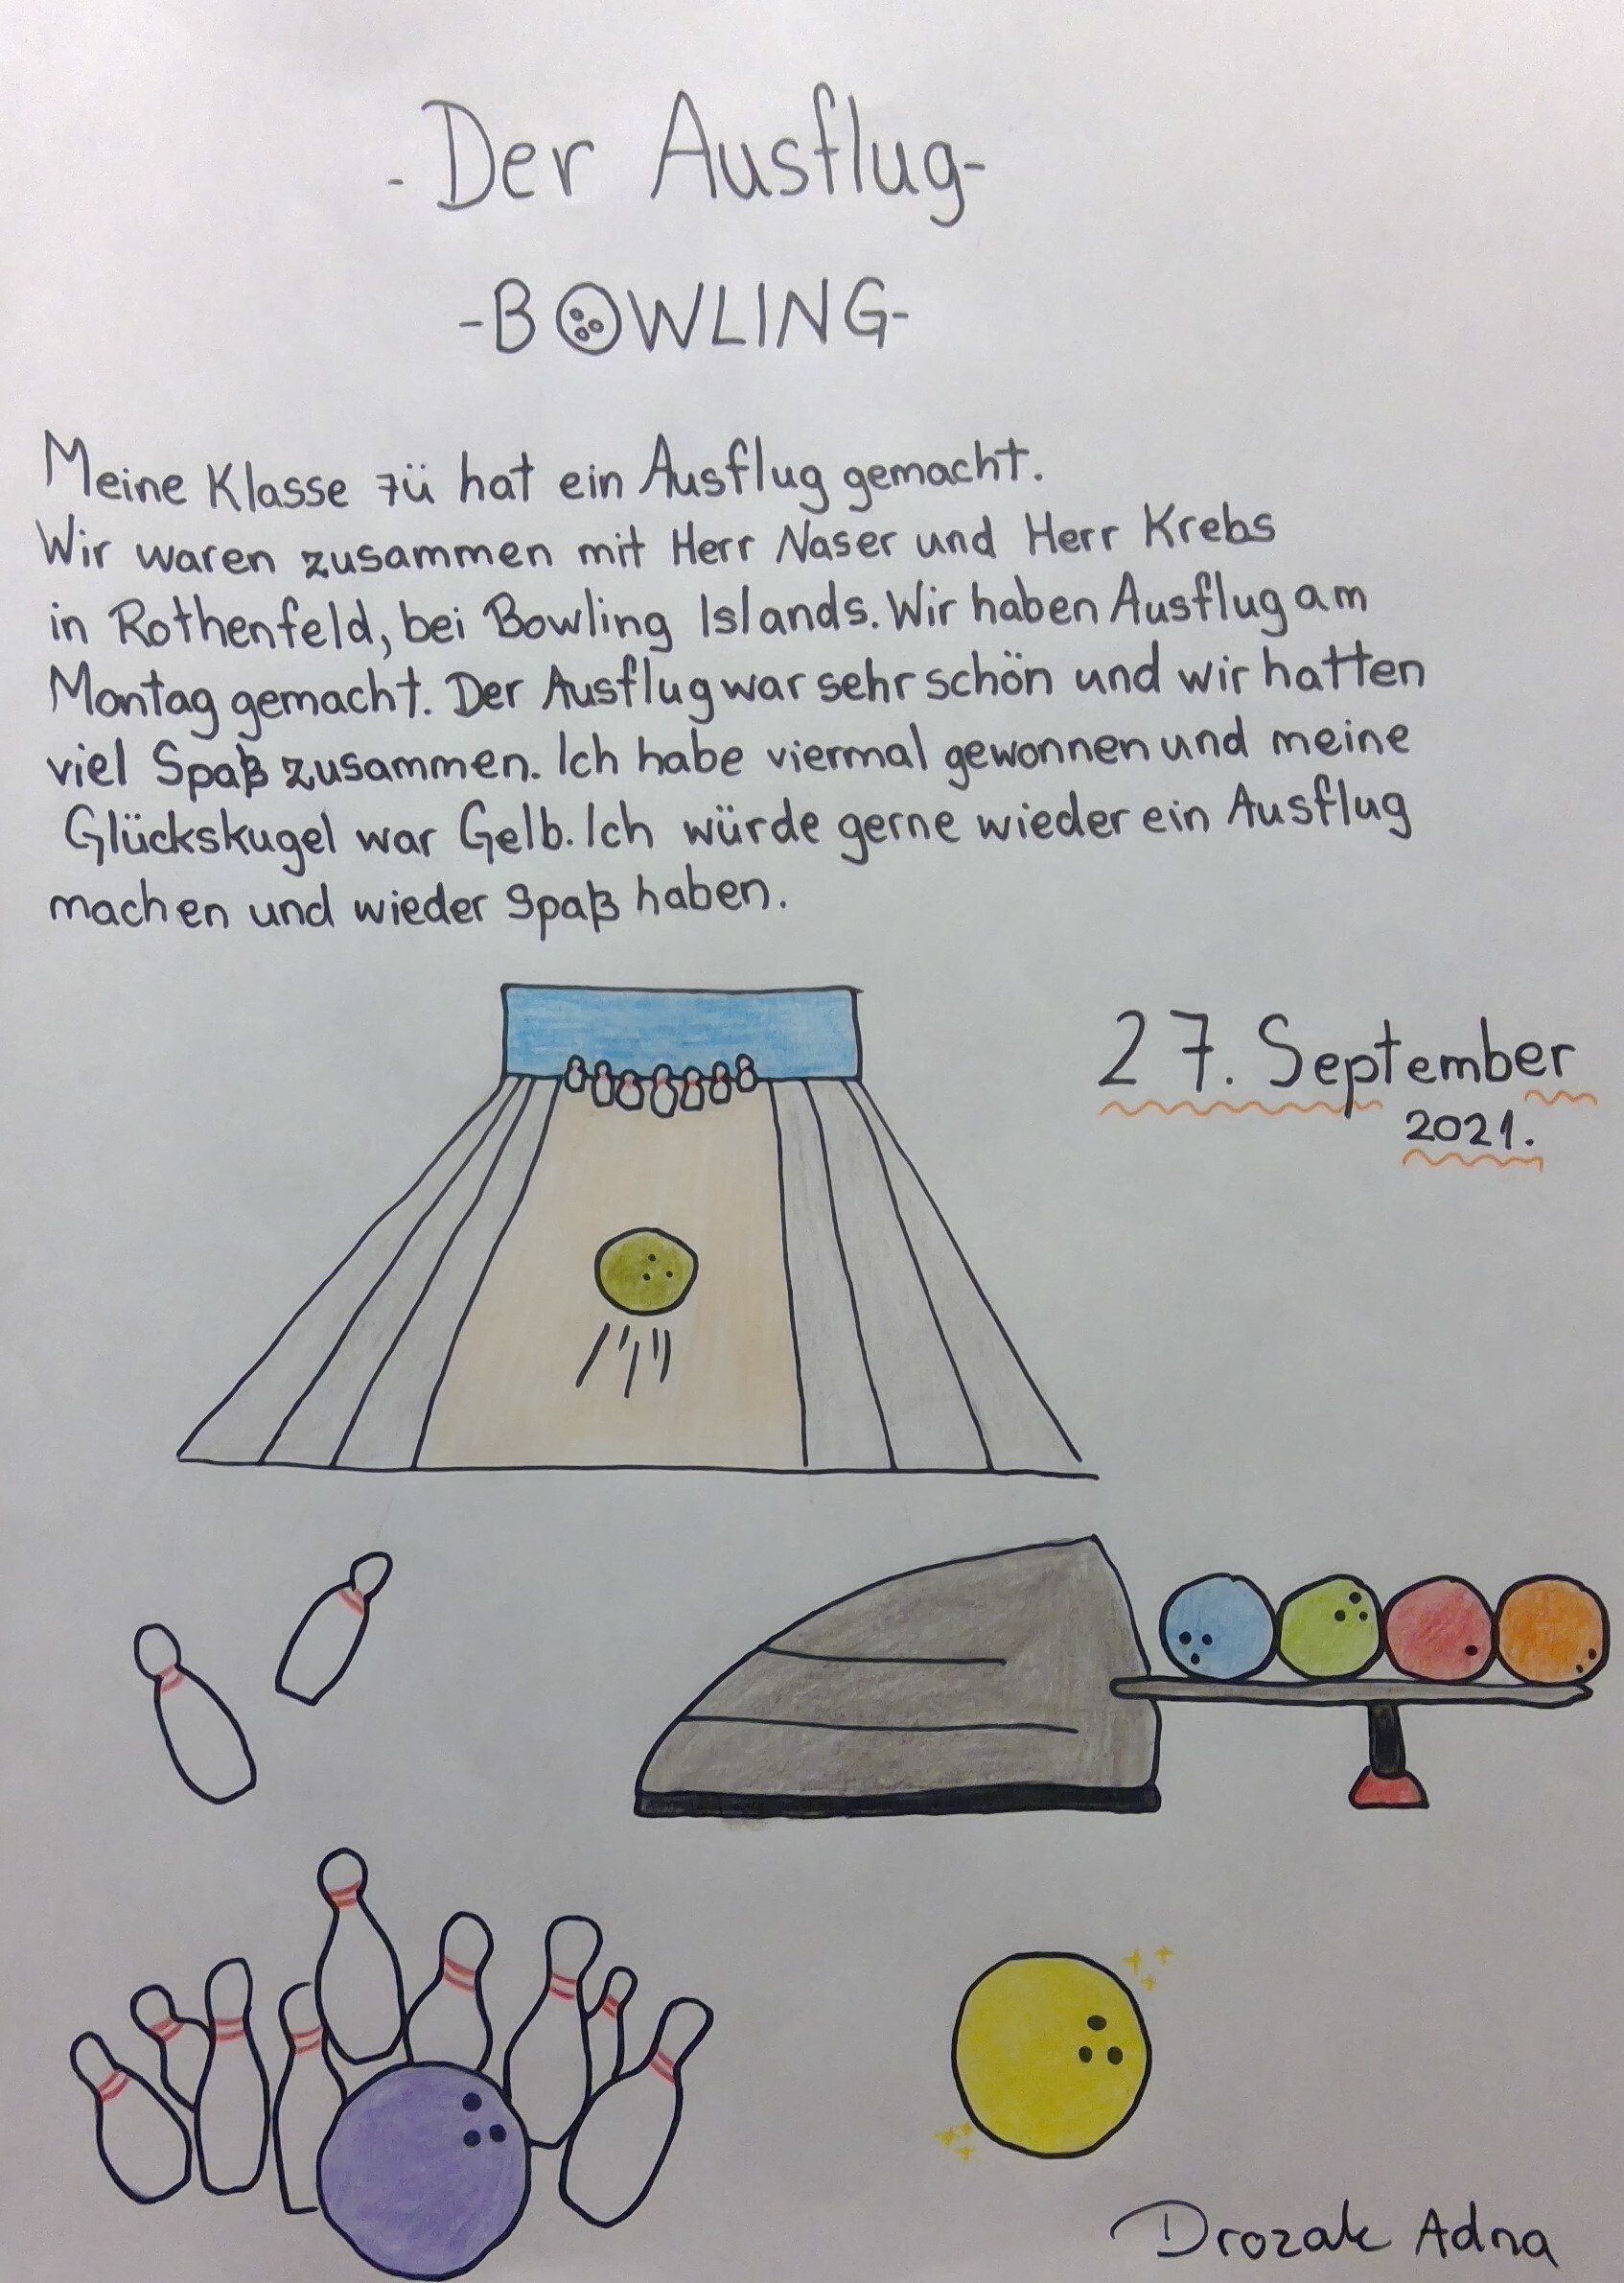 - Der Ausflug-
-BOWLING-
Meine Klasse 7ü hat ein Ausflug gemacht.
Wir waren zusammen mit Herr Naser und Herr Krebs
in Rothenfeld, bei Bowling Islands. Wir haben Ausflug am
Montag gemacht. Der Ausflug war sehr schön und wir hatten
viel Spaß zusammen. Ich habe viermal gewonnen und meine
Glückskugel war Gelb. Ich würde gerne wieder ein Ausflug
machen und wieder Spaß haben.
27. September
2021.
Drozak Adna